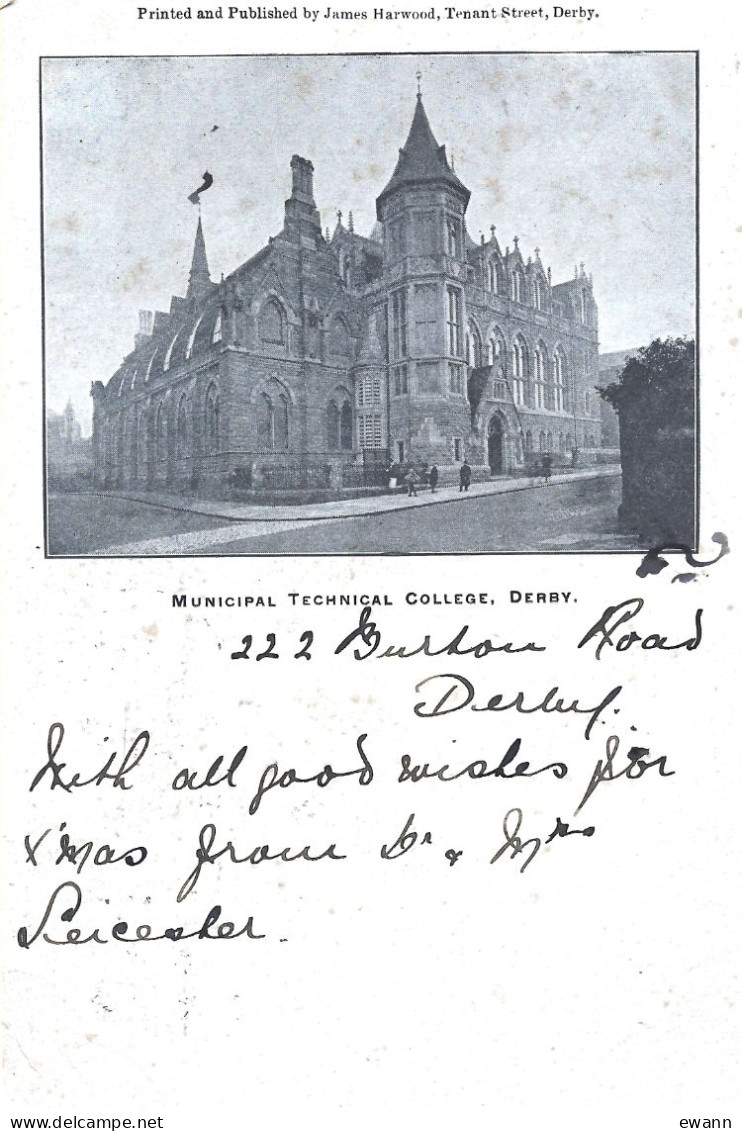 Printed and Published by James Harwood, Tenant Street, Derby.
MUNICIPAL TECHNICAL COLLEGE, DERBY.
222 Burton Road
Derby.
With all good wishes for
X'mas from Dr & Mrs
Leicester.
ewann
www.delcampe.net